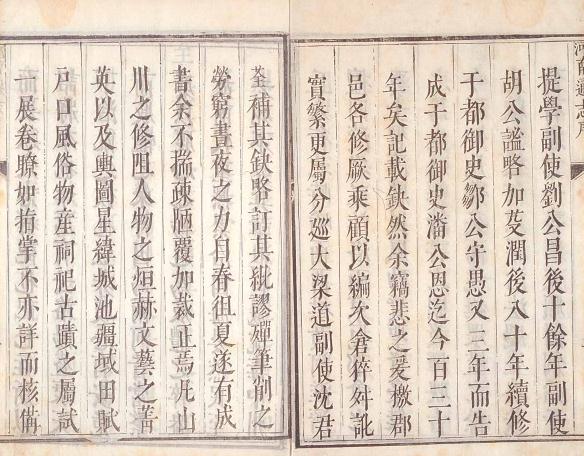 河南通志序
提學副使劉公昌後十餘年副使
胡公謐略加芟潤後八十年續修
于都御史鄒公守愚又三年而告
成于都御史潘公恩迄今百三十
年矣記載缺然余竊悲之爰檄郡
邑各修厥乘顧以編次倉倅舛訛
實繁更屬分巡大梁道副使沈君
荃補其缺略訂其紕謬殫筆削之
勞窮晝夜之力自春徂夏遂有成
書余不揣疎陋覆加裁正焉凡山
川之修阻人物之烜赫文藝之菁
英以及輿圖星緯城池疆域田賦
戶口風俗物産祠祀古蹟之屬試
一展卷瞭如指掌不亦詳而核備